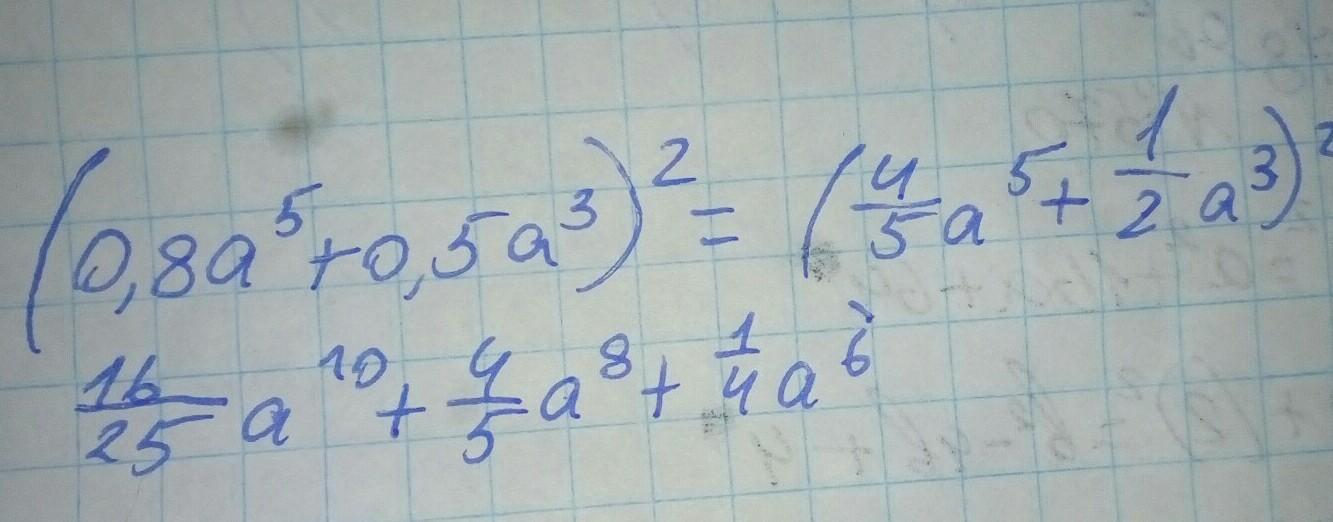 (0,8a⁵+0,5a³)² = (4/5 a⁵ + 1/2 a³)²
16/25 a¹⁰ + 4/5 a⁸ + 1/4 a⁶